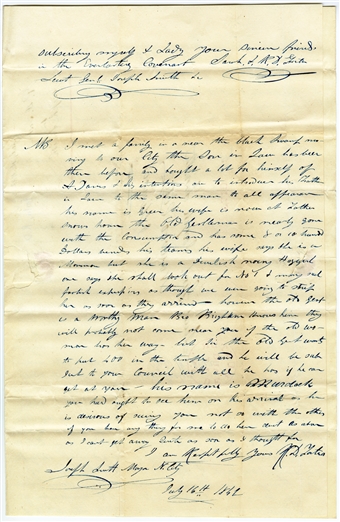 subscribing myself & Lady your sincere friends
in the Everlasting Covenant Sarah &
Lieut Genl Joseph Smith
NB I met a family in a near the black Swamp mo
ving to our City the Son in Law has been
there before and bought a lot for himself of
& his intentions are to introduce his Father
in Law to the same man to all appearance
his name is Green his wife is now at Father
Snows house the Old Gentleman is nearly gone
with the Consumption and has some 8 or 10 hundred
Dollars besides his teams his wife says she is a
Mormon but she is a
one says she shall look out for No 1 &
as though we were going to strip
her as soon as they arrived however the old Gent
is a Worthy Man Bro Brigham knows him they
will probably not come near you if the old wo
man has her way but the Old Gent wants
to put 400 in the temple and he will be sub
ject to your Council with all he has if he can
get at you his name is Murdock
you had ought to see him on his arrival as he
is desirous of seeing you not so with the others
if you have any thing for me to do here
as I can't get away quite as soon as I thought for
I am Respectfully yours
Joseph Smith Mayor N. City
July 16th 1842